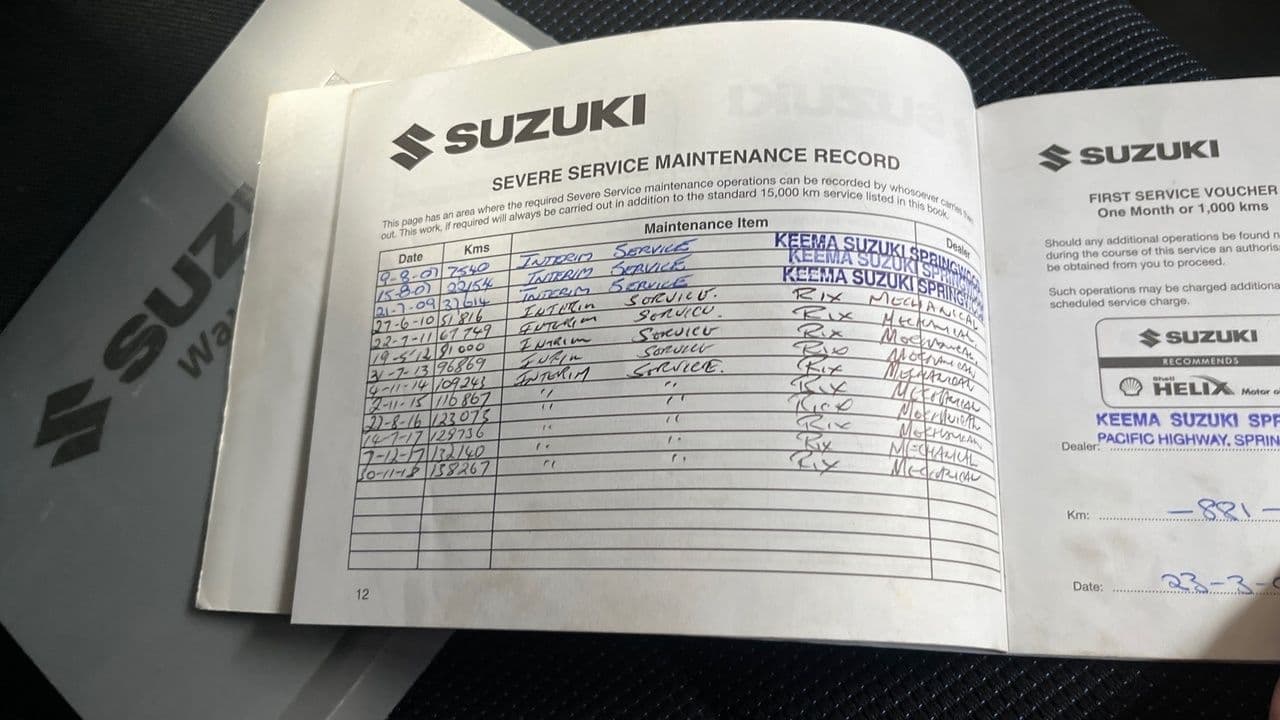 SUZUKI
Wa
SUZUKI
SEVERE SERVICE MAINTENANCE RECORD
This page has an area where the required Severe Service maintenance operations can be recorded by whosoever carries
out. This work, if required will always be carried out in addition to the standard 15,000 km service listed in this book.
Date Kms Maintenance Item Dealer
9-8-07 7540 INTERIM SERVICE KEEMA SUZUKI SPRINGWOOD
15-8-07 22154 INTERIM SERVICE KEEMA SUZUKI SPRINGWOOD
21-7-09 37614 INTERIM SERVICE KEEMA SUZUKI SPRINGWOOD
27-6-10 51816 INTERIM SORVICE. RIX MECHANICAL
22-7-11 67749 INTERIM SORVICE. RIX MECHANICAL
19-5-12 81000 INTRIM SORVICE RIX MECHANICAL
31-7-13 96869 SORVICE RIX MECHANICAL
4-11-14 109243 INTERIM SORVICE. RIX MECHANICAL
2-11-15 116867 " " RIX MECHANICAL
22-8-16 123075 " " MECHANICAL
14-7-17 128736 " " RIX MECHANICAL
7-12-17 132140 " " RIX MECHANICAL
30-11-18 138267 " " RIX MECHANICAL
12
SUZUKI
FIRST SERVICE VOUCHER
One Month or 1,000 kms
Should any additional operations be found n
during the course of this service an authoris
be obtained from you to proceed.
Such operations may be charged additiona
scheduled service charge.
SUZUKI
RECOMMENDS
Shell
HELIX Motor o
KEEMA SUZUKI SPR
Dealer: PACIFIC HIGHWAY, SPRIN
Km: -881-
Date: 23-3-0